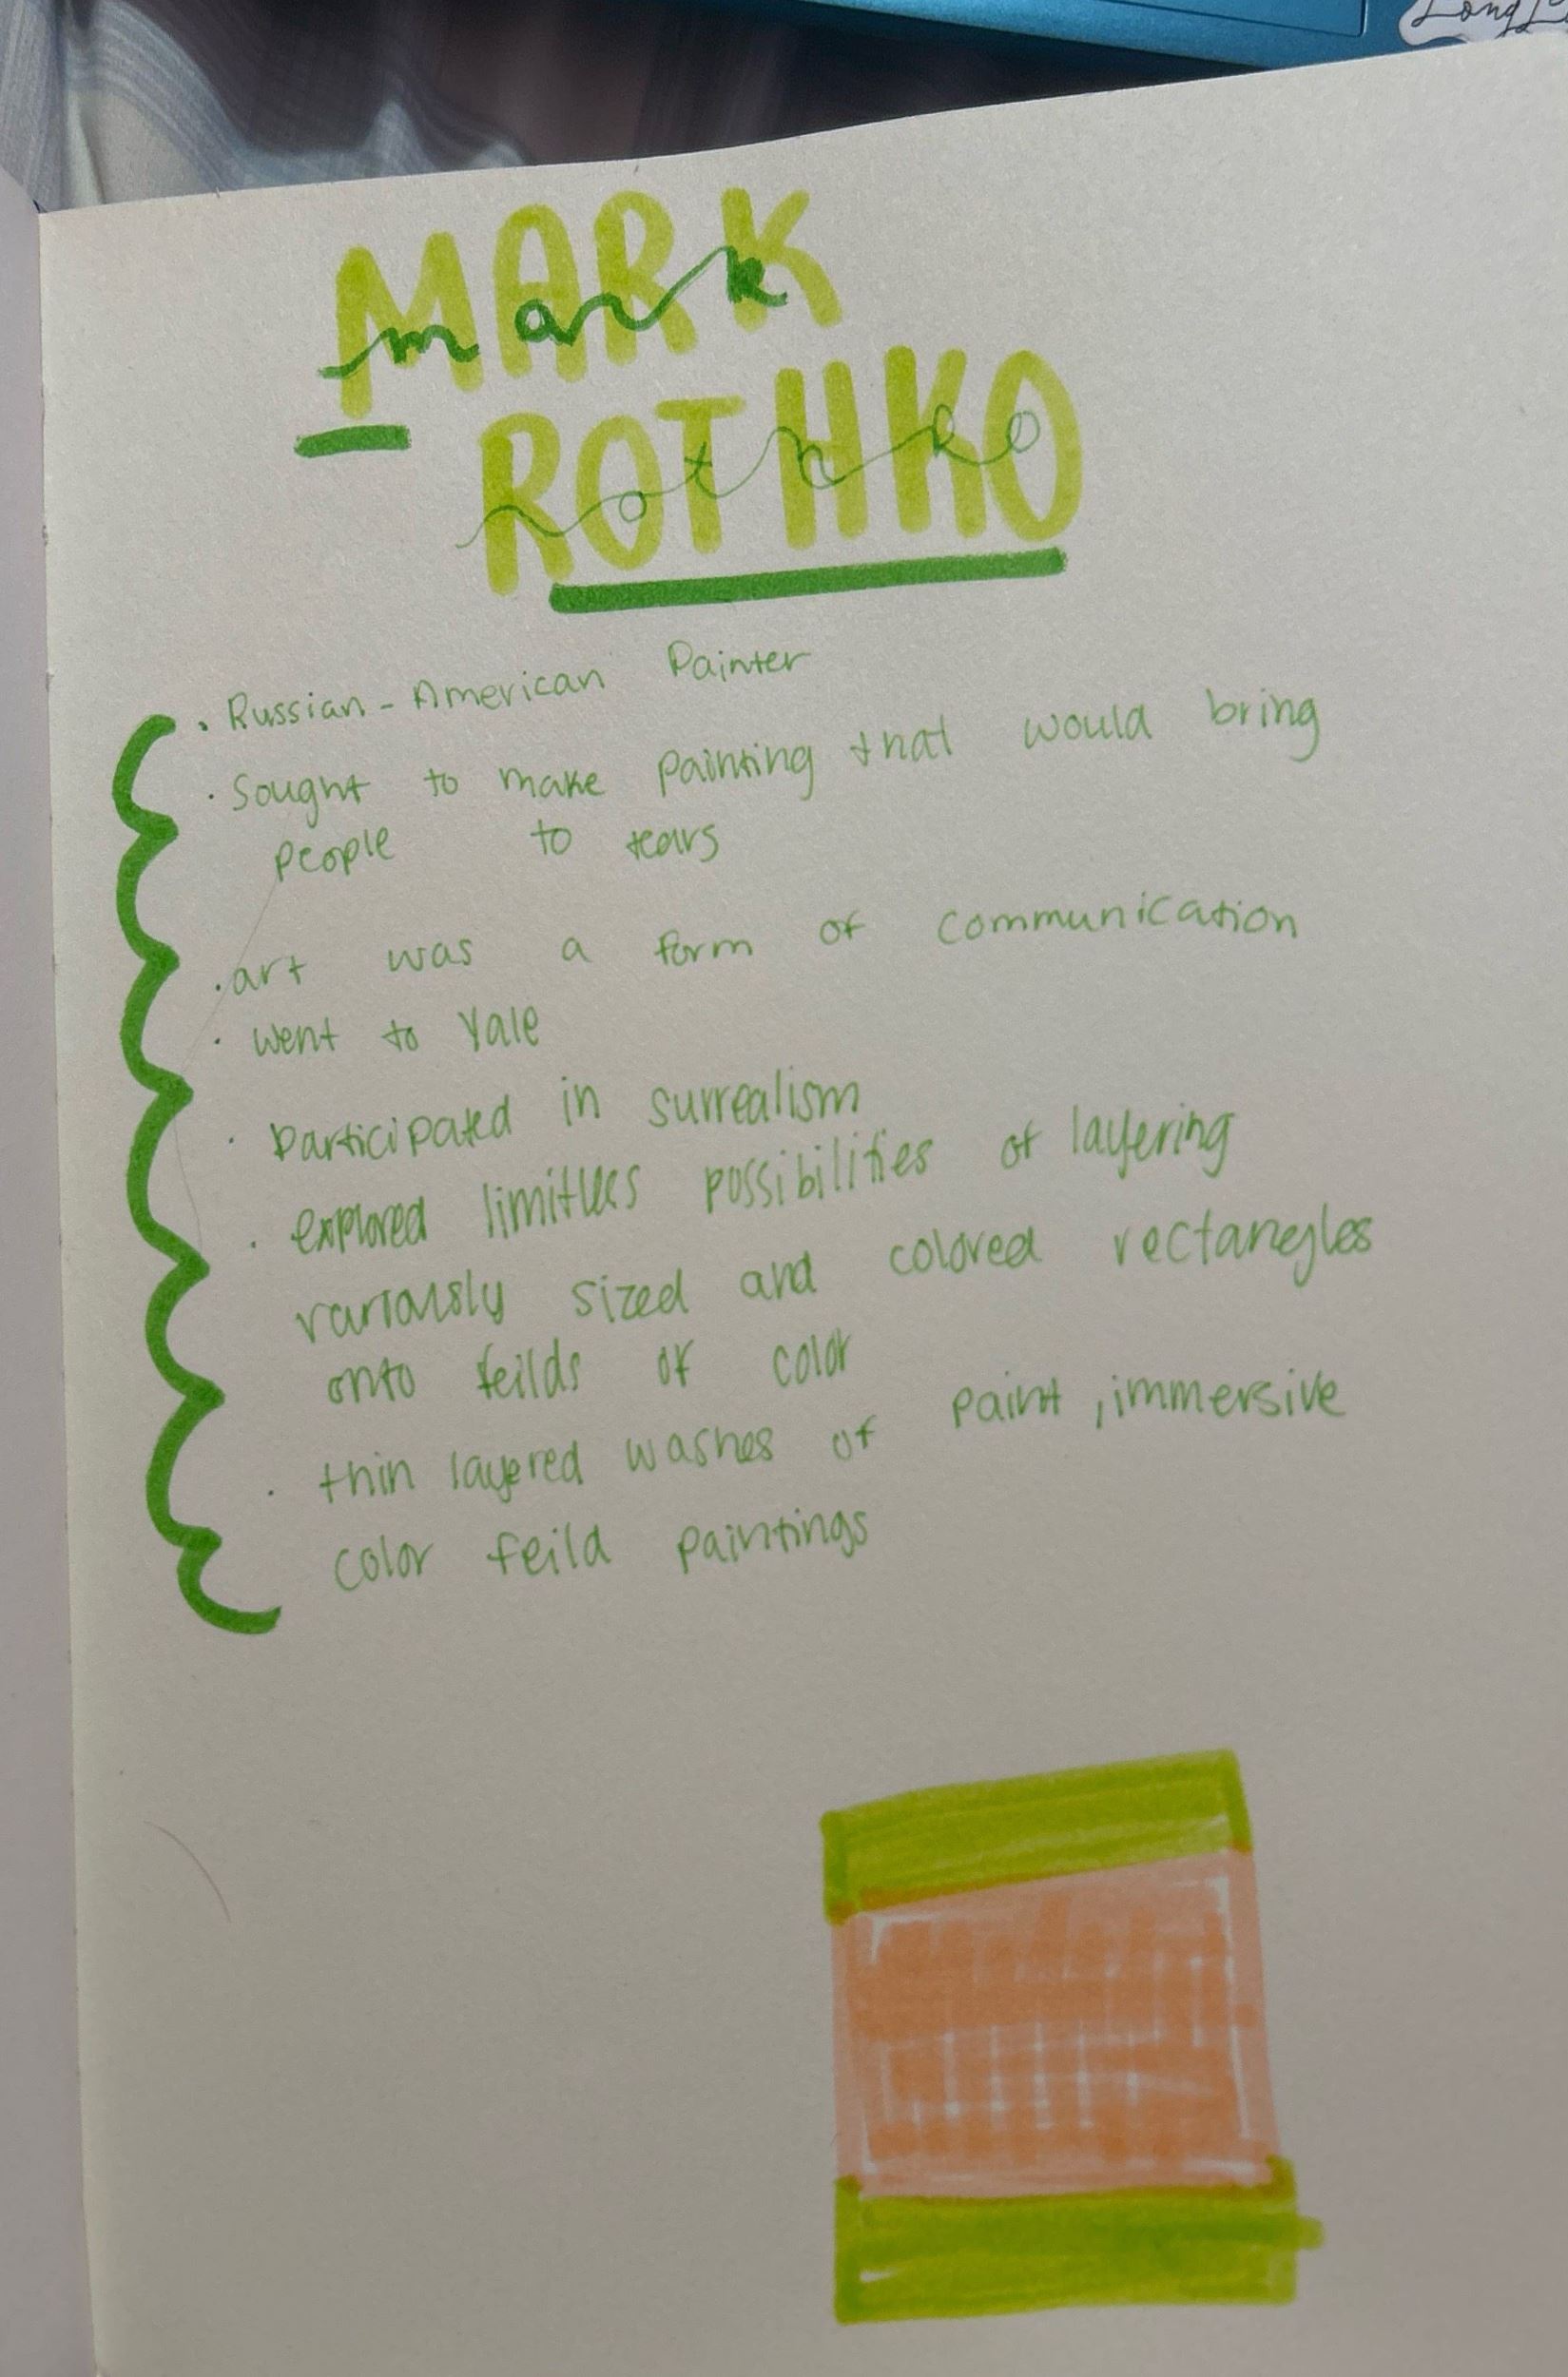 Long
MARK
mark
ROTHKO
rothko
. Russian - American Painter
. Sought to make painting that would bring
people to tears
. art was a form of communication
. went to Yale
. participated in surrealism
. explored limitless possibilities of layering
variously sized and colored rectangles
onto feilds of color
. thin layered washes of paint, immersive
color feild paintings